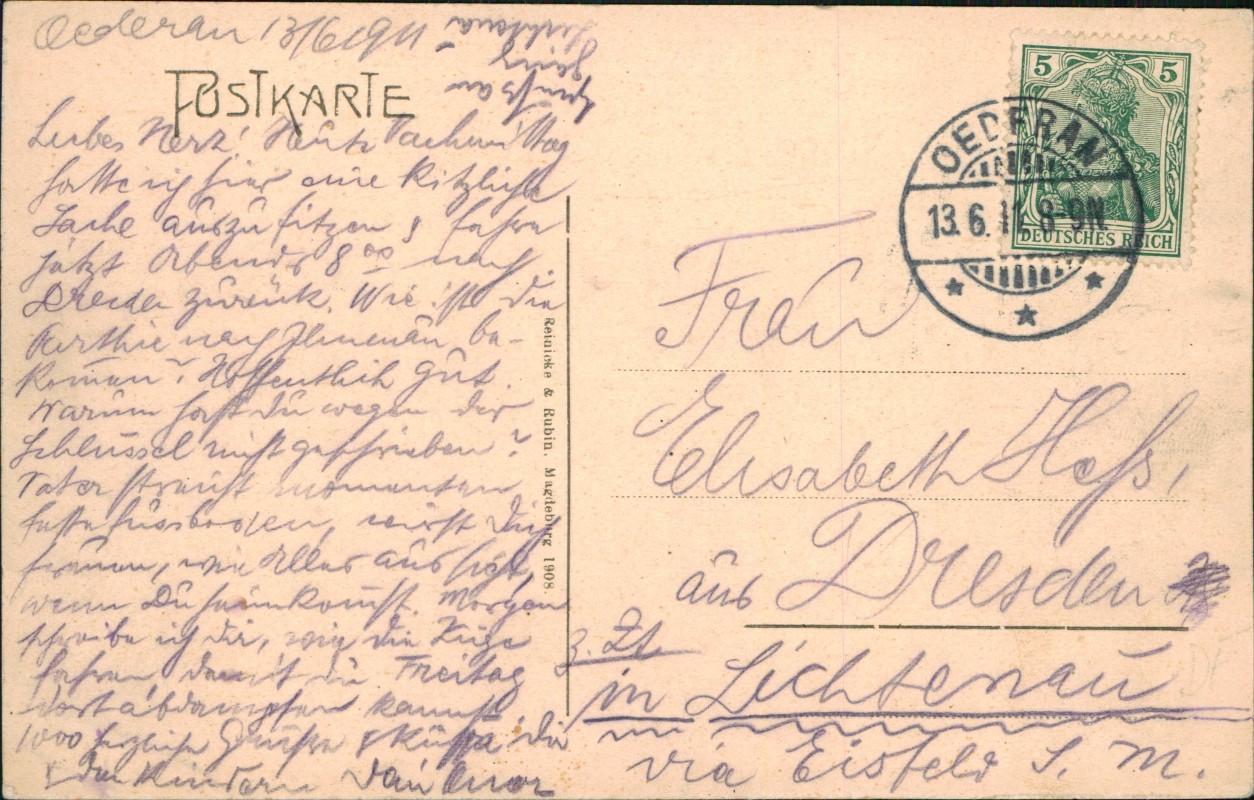 Oederan 13/6 1911
POSTKARTE
Liebes Herz! Heute Nachmittag
hatte ich hier eine kitzliche
Sache auszufitzen & fahre
jetzt Abends 8 00 nach
Dresden zurück. Wie ist die
Parthie nach Ilmenau be-
kommen? Hoffentlich gut.
Warum hast Du wegen der
Schlüssel nicht geschrieben?
Vater streicht momentan
Fussboden, wirst Dich
freuen, wie Alles aussieht,
wenn Du heimkommst. Morgen
schreibe ich dir, wie die Züge
fahren damit du Freitag
dort abdampfen kannst
1000 herzliche Grüsse & Küsse dir
& den Kindern Dein
Reinicke & Rubin, Magdeburg 1908.
5 5
DEUTSCHES REICH
OEDERAN
13.6.11. 8-9N
Frau
Elisabeth Hess,
aus Dresden
z. Zt.
in Lichtenau
via Eisfeld S. M.